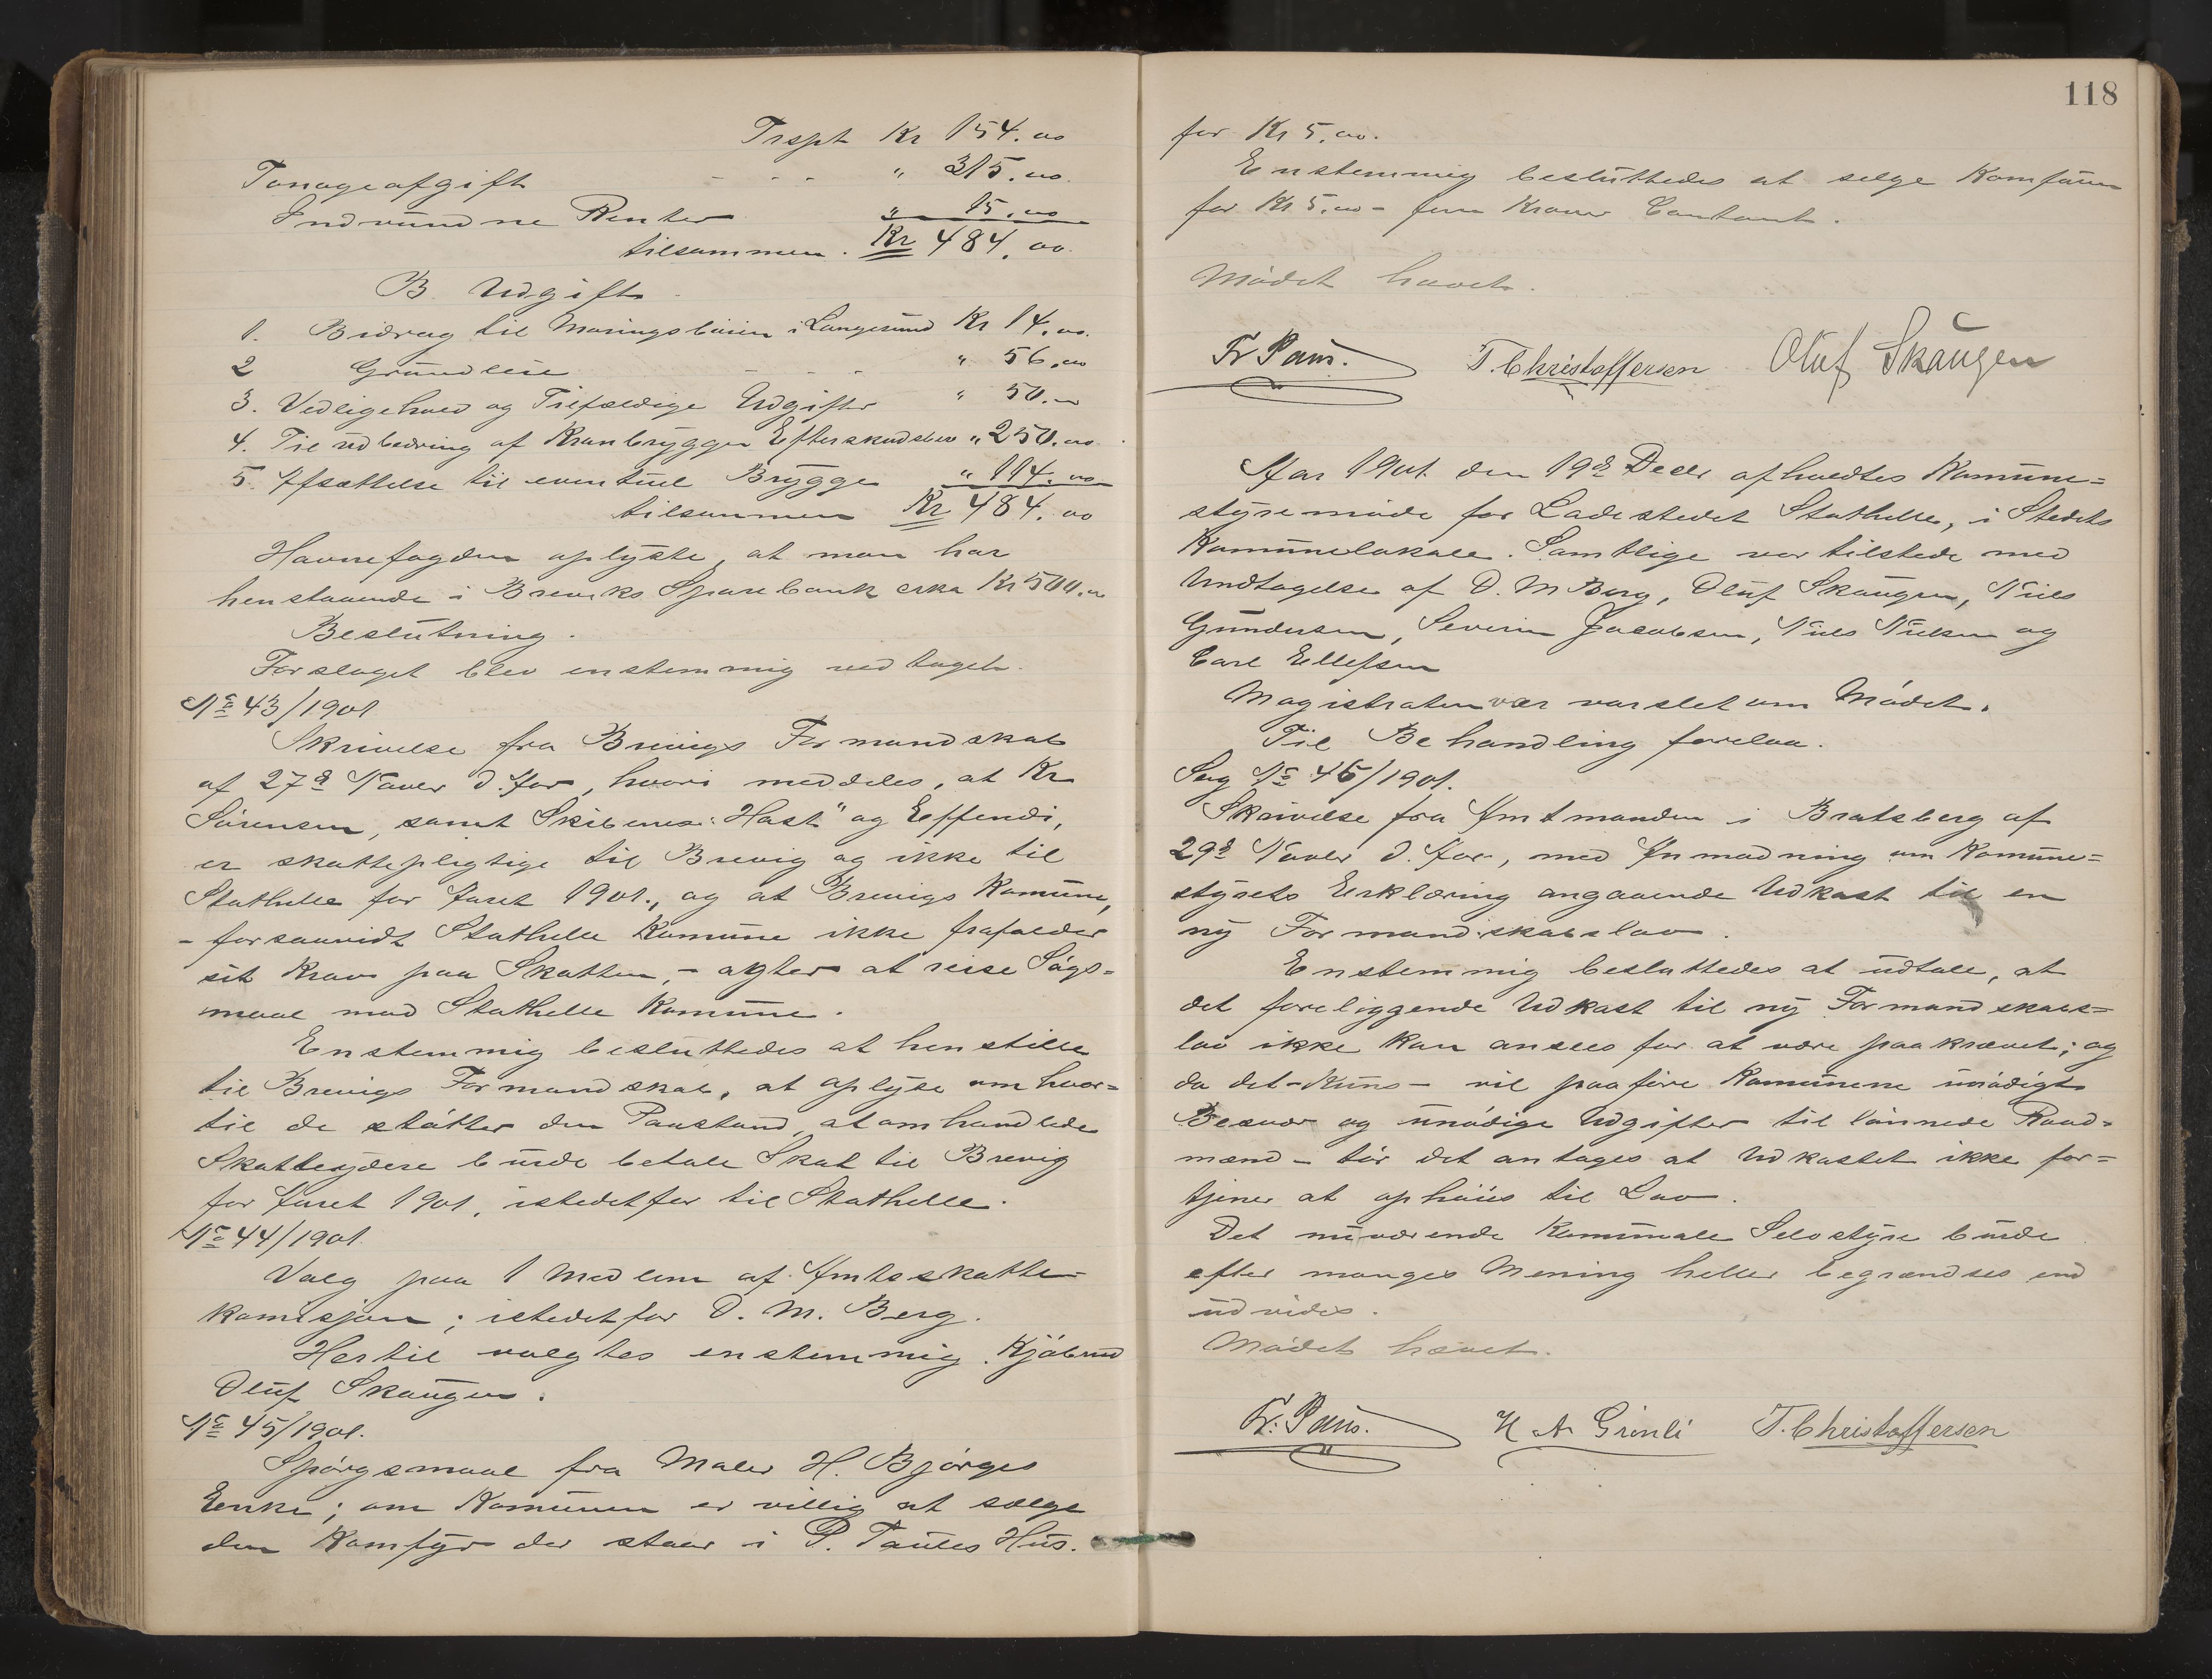 Trspt Kr 154.00
Tonageafgift - - - " 315.00
Indvundne Renter " 15.00
tilsammen. Kr 484.00
B. Udgift
1. Bidrag til Maringsbøien i Langesund Kr 14.00
2 Grundleie - - - " 56.00
3. Vedligehold og Tilfældige Udgifter " 50.00
4. Til udbedring af Kranbryggen Efterskudsvis " 250.00
5. Afsættelse til eventuel Brygge " 114.00
tilsammen Kr 484.00
Havnefogden oplyste, at man har
henstaaende i Breviks Sparebank cirka Kr 500.00
Beslutning.
Forslaget blev enstemmig vedtaget.
No 43/1901
Skrivelse fra Brevigs Formandskab
af 27de Novbr d. Aar, hvori meddeles, at Kr
Sørensen, samt Skibene "Hast" og Effendi,
er skattepligtige til Brevig og ikke til
Stathelle for Aaret 1901., og at Brevigs Komune,
- forsaavidt Stathelle Komune ikke frafalder
sit Krav paa Skatten, - agter at reise Søgs=
maal mod Stathelle Komune.
Enstemmig besluttedes at henstille
til Brevigs Formandskab, at oplyse om hvor=
til de støtter den Paastand, at omhandlede
Skatteydere burde betale Skat til Brevig
for Aaret 1901, istedetfor til Stathelle.
No 44/1901.
Valg paa 1 Medlem af Amtsskatte-
komisjon; istedetfor D. M. Berg.
Hertil valgtes enstemmig Kjøbmd
Oluf Skaugen.
No 45/1901.
Spørgsmaal fra Maler H. Bjørges
Enke; om Komunen er villig at sælge
den Komfyr der staar i P. Paules Hus.
118
for Kr 5.00.
Enstemmig besluttedes at selge Komfuren
for Kr 5.00 - fem Kroner Contant.
Mødet hævet.
Fr Paus. T. Christoffersen Oluf Skaugen
Aar 1901 den 19de Decbr afholdtes Komune=
styremøde for Ladestedet Stathelle, i Stedets
Komunelokale. Samtlige var tilstede med
Undtagelse af D. M Berg, Oluf Skaugen, Niels
Gundersen, Severin Jacobsen, Niels Nielsen og
Carl Ellefsen
Magistraten var varslet om Mødet.
Til Behandling forelaa.
Sag No 46/1901.
Skrivelse fra Amtmanden i Bratsberg af
29de Novbr d. Aar, med Anmodning om Komune=
styrets Erklæring angaaende Udkast til en
ny Formandskabslov.
Enstemmig besluttedes at udtale, at
det foreliggende Udkast til ny Formandskabs=
lov ikke kan ansees for at være paakrævet; og
da det - Kuns - vil paaføre Komunene unødigt
Besvær og unødige Udgifter til lønnede Raad=
mænd - tør det antages at Udkastet ikke for=
tjener at ophøies til Lov.
Det nuværende Komunale Selvstyre burde
efter manges Mening heller begrændses end
udvides.
Mødet hævet.
Fr. Paus. H A Grinli T. Christoffersen